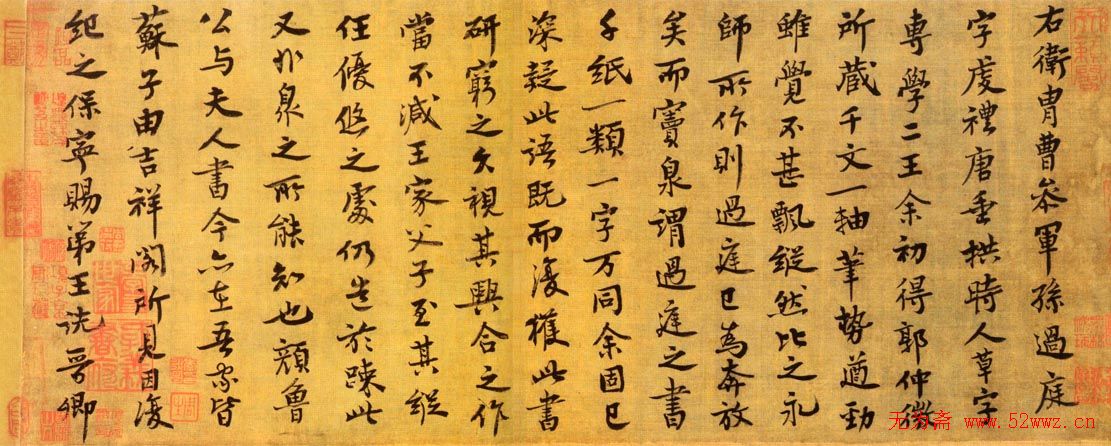 右衛胄曹叅軍孫過庭
字虔禮唐垂拱時人草字
専學二王余初得郭仲微
所蔵千文一軸筆勢遒勁
雖覺不甚飄縱然比之永
師所作則過庭已為奔放
矣而竇泉謂過庭之書
千紙一類一字万同余固已
深疑此語既而復獲此書
研窮之久視其興合之作
當不減王家父子至其縱
任優悠之處仍造於踈此
又非泉之所能知也顔魯
公与夫人書今亦在吾家皆
蘇子由吉祥閣所見因復
紀之保寧賜第王詵晉卿
无为斋 www.52wwz.cn